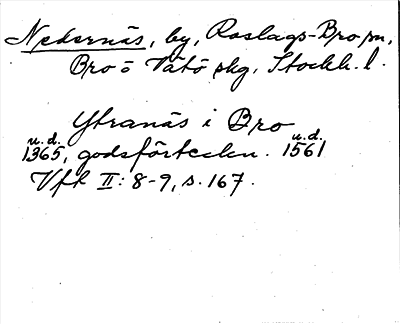 Nedernäs, by, Roslags-Bro sn,
Bro o Vätö skg, Stockh. l.
Ytranäs i Bro
u.d. u.d.
1365, godsförteckn. 1561
Vfh II: 8-9, s. 167.